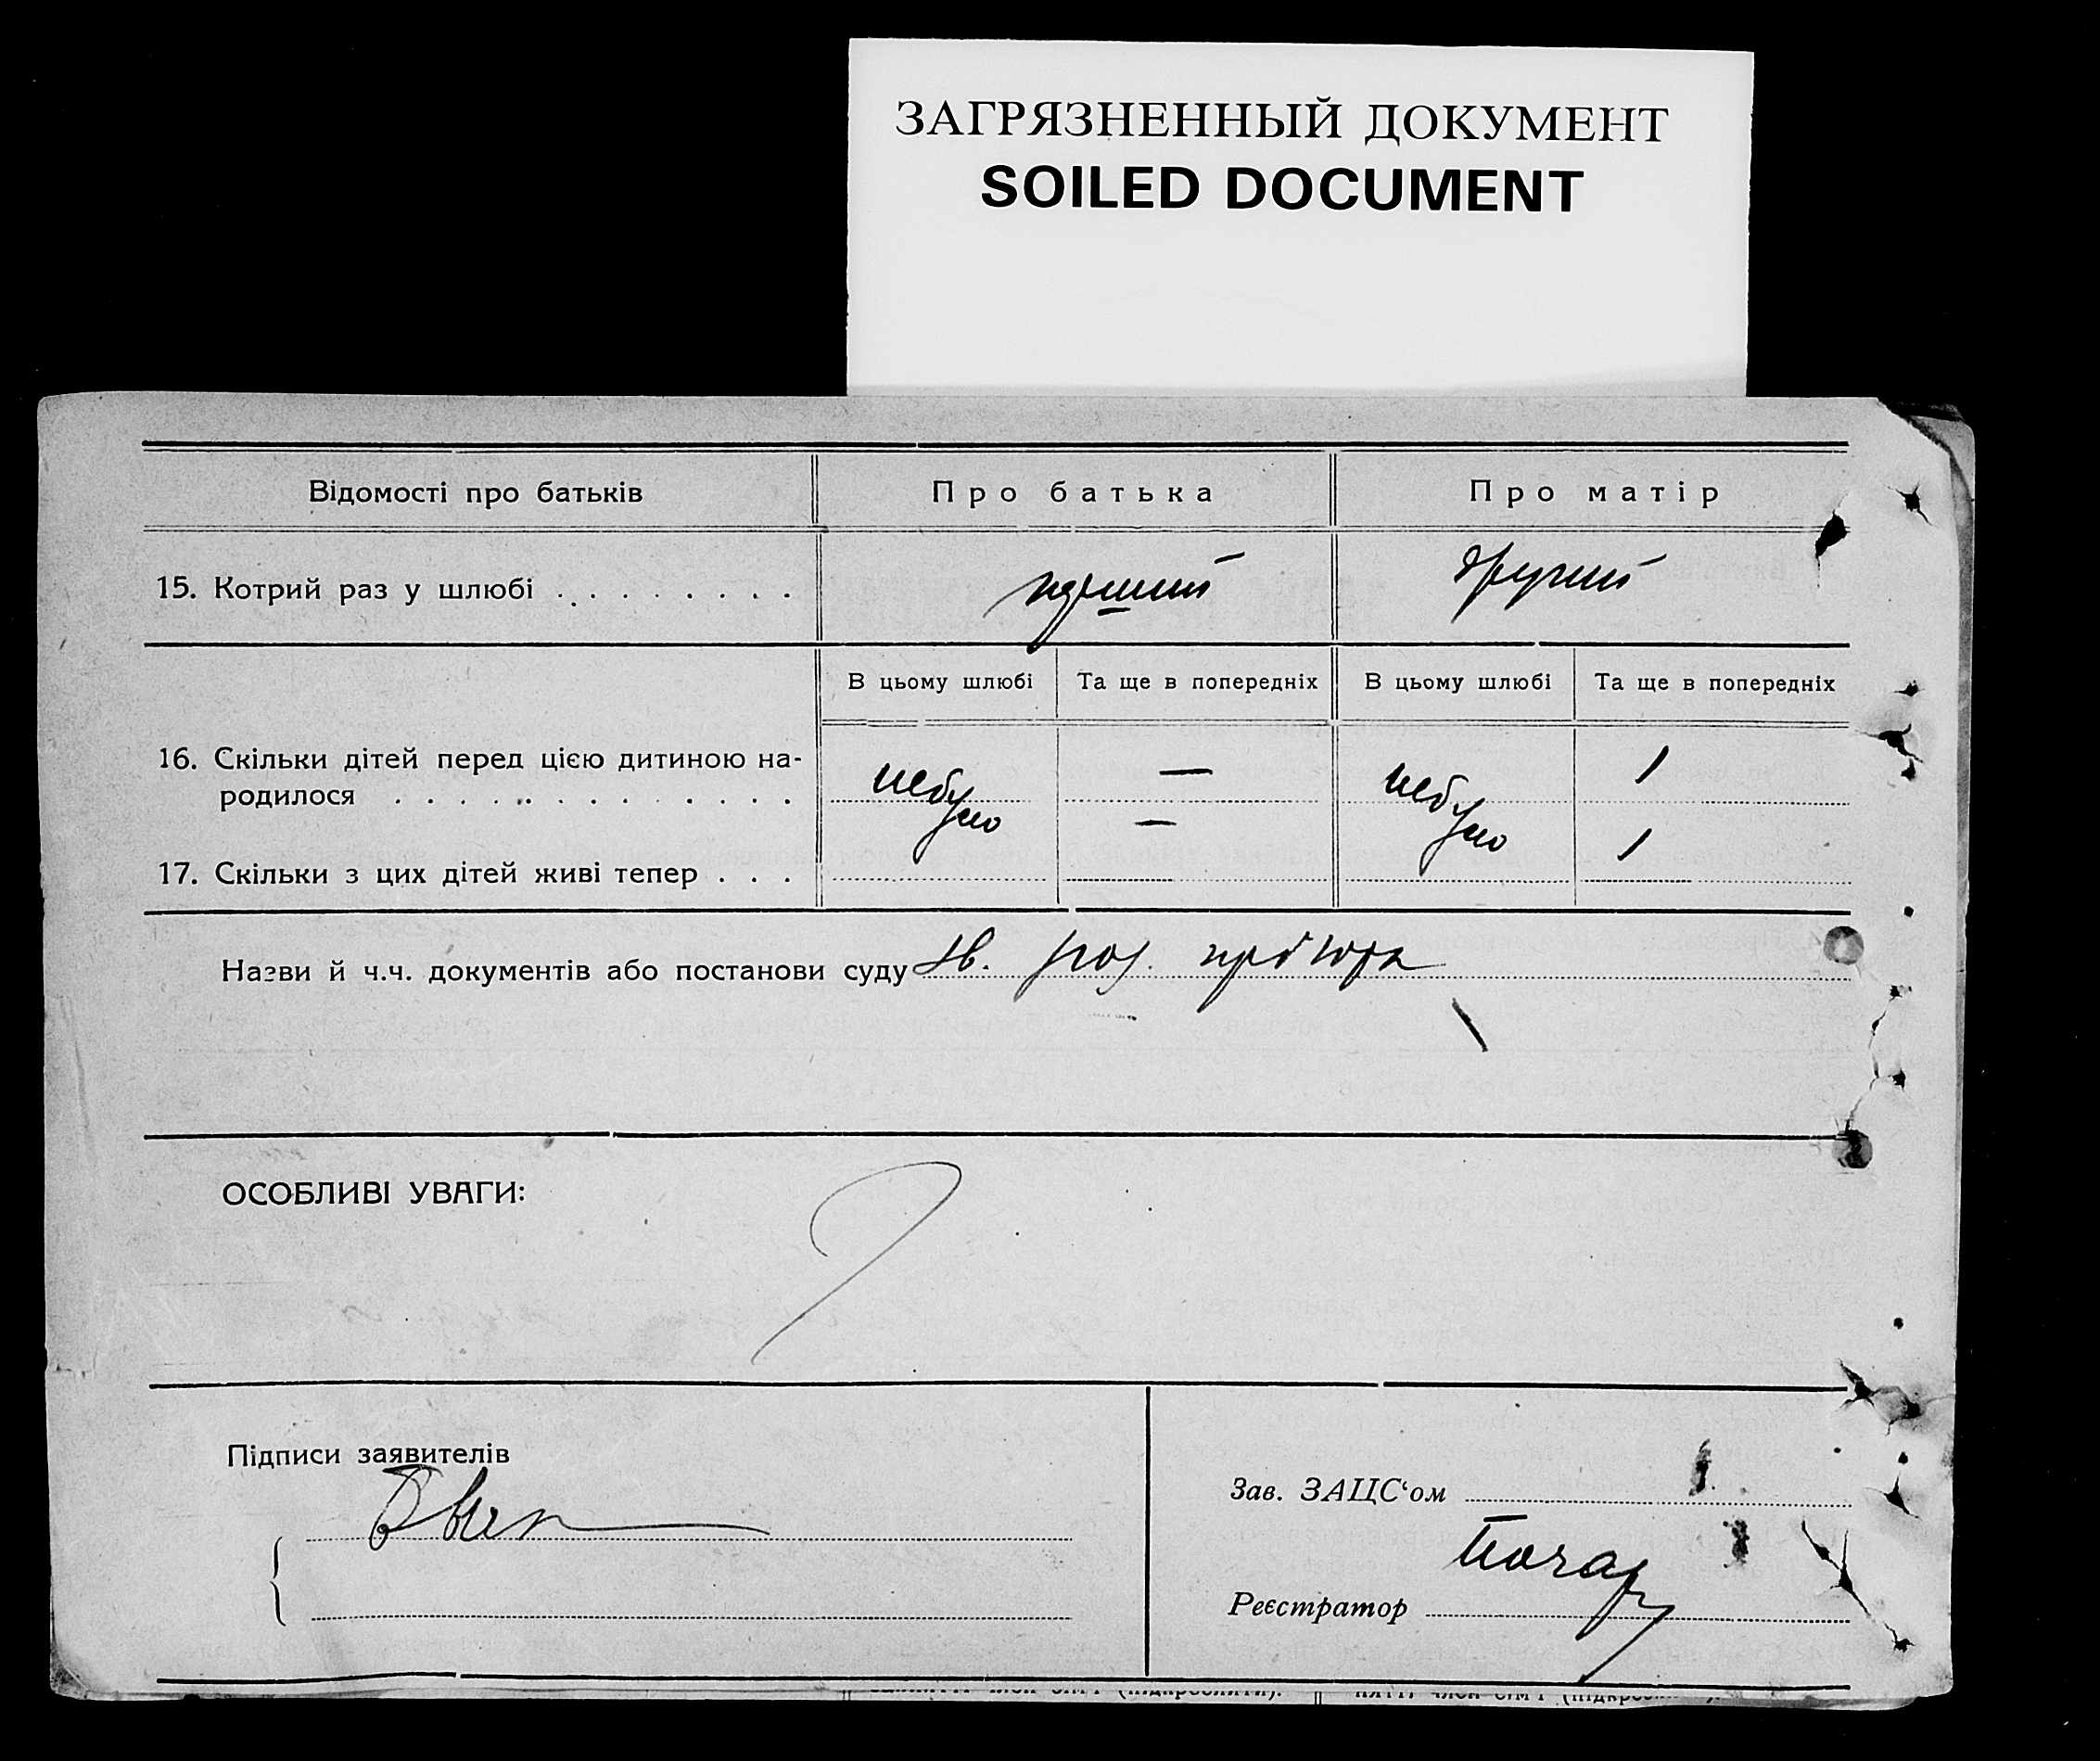 ЗАГРЯЗНЕННЫЙ ДОКУМЕНТ
SOILED DOCUMENT
Відомості про батьків Про батька Про матір
15. Котрий раз у шлюбі . . . . . . . . перший другий
В цьому шлюбі Та ще в попередніх В цьому шлюбі Та ще в попередніх
16. Скільки дітей перед цією дитиною на-
родилося . . . . . . . . . . . . . небуло — небуло 1
17. Скільки з цих дітей живі тепер . . . — 1
Назви й ч.ч. документів або постанови суду
ОСОБЛИВІ УВАГИ:
Підписи заявителів
Зав. ЗАЦС‘ом
Реєстратор